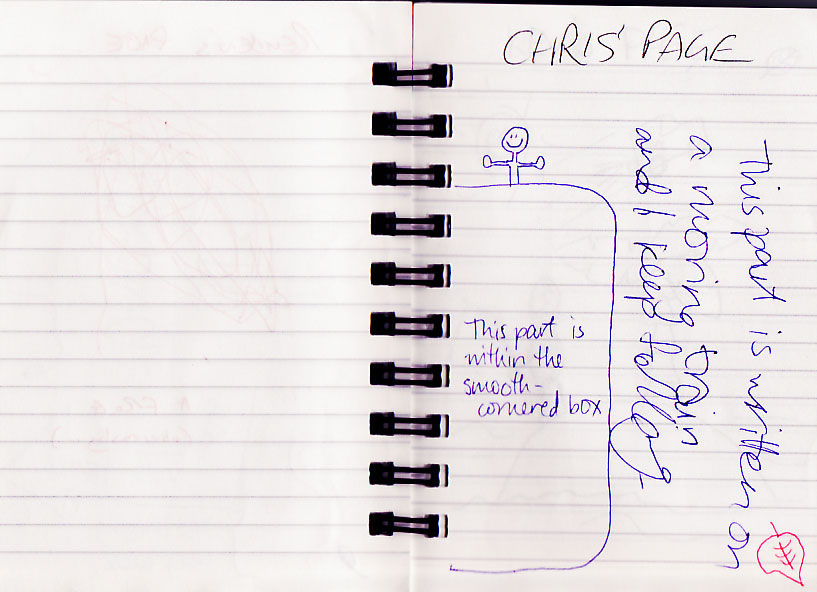 CHRIS' PAGE
This part is written on
a moving train
and I keep falling.
This part is
within the
smooth-
cornered box